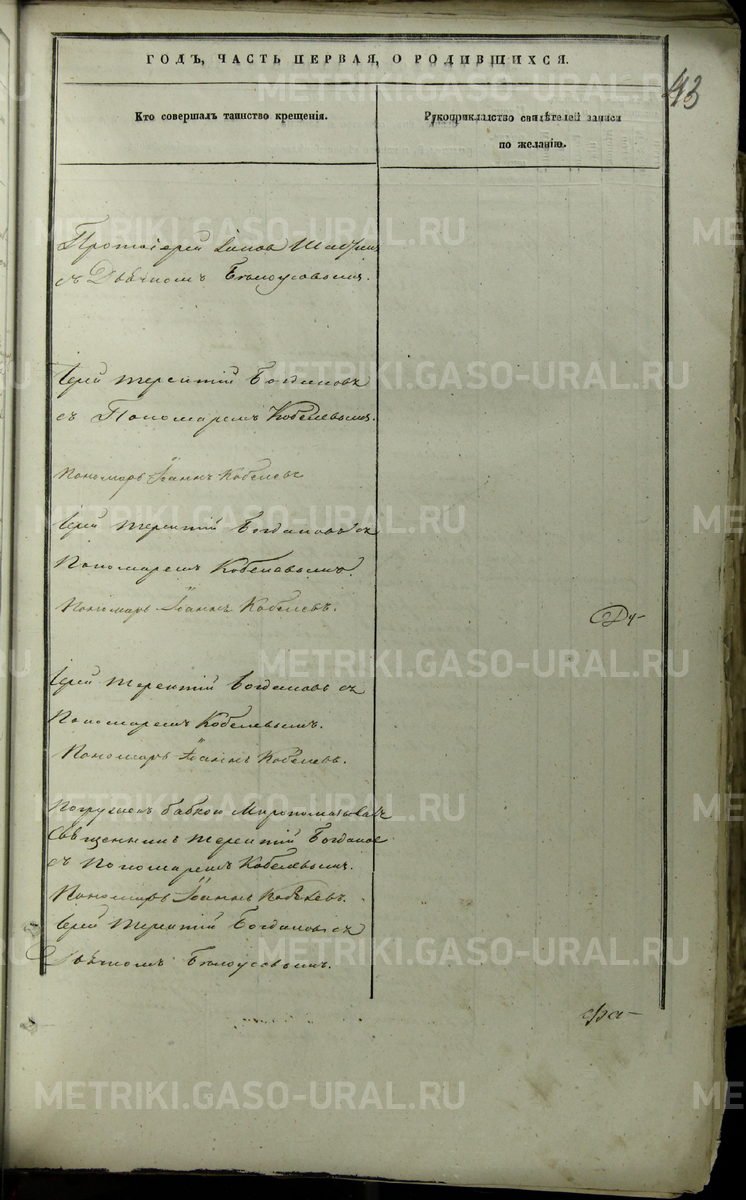 ГОДЪ, ЧАСТЬ ПЕРВАЯ, О РОДИВШИХСЯ.
43
Кто совершалъ таинство крещенія.
Рукоприкладство свидѣтелей записи
по желанію.
Протоіерей
съ Дьячкомъ Бѣлоусовымъ.
Іерей Терентій Богдановъ
съ Пономаремъ Кобелевымъ.
Пономарь Іоаннъ Кобелевъ
Іерей Терентій Богдановъ съ
Пономаремъ Кобелевымъ.
Пономарь Іоаннъ Кобелевъ.
Ду-
Іерей Терентій Богдановъ съ
Пономаремъ Кобелевымъ.
Пономарь Іоаннъ Кобелевъ.
Погруженъ бабкою Миропомазывалъ
Священникъ Терентій Богданов
съ Пономаремъ Кобелевымъ.
Пономарь Іоаннъ Кобелевъ.
Іерей Терентій Богдановъ съ
Дьячкомъ Бѣлоусовымъ.
фа-
METRIKI.GASO-URAL.RU